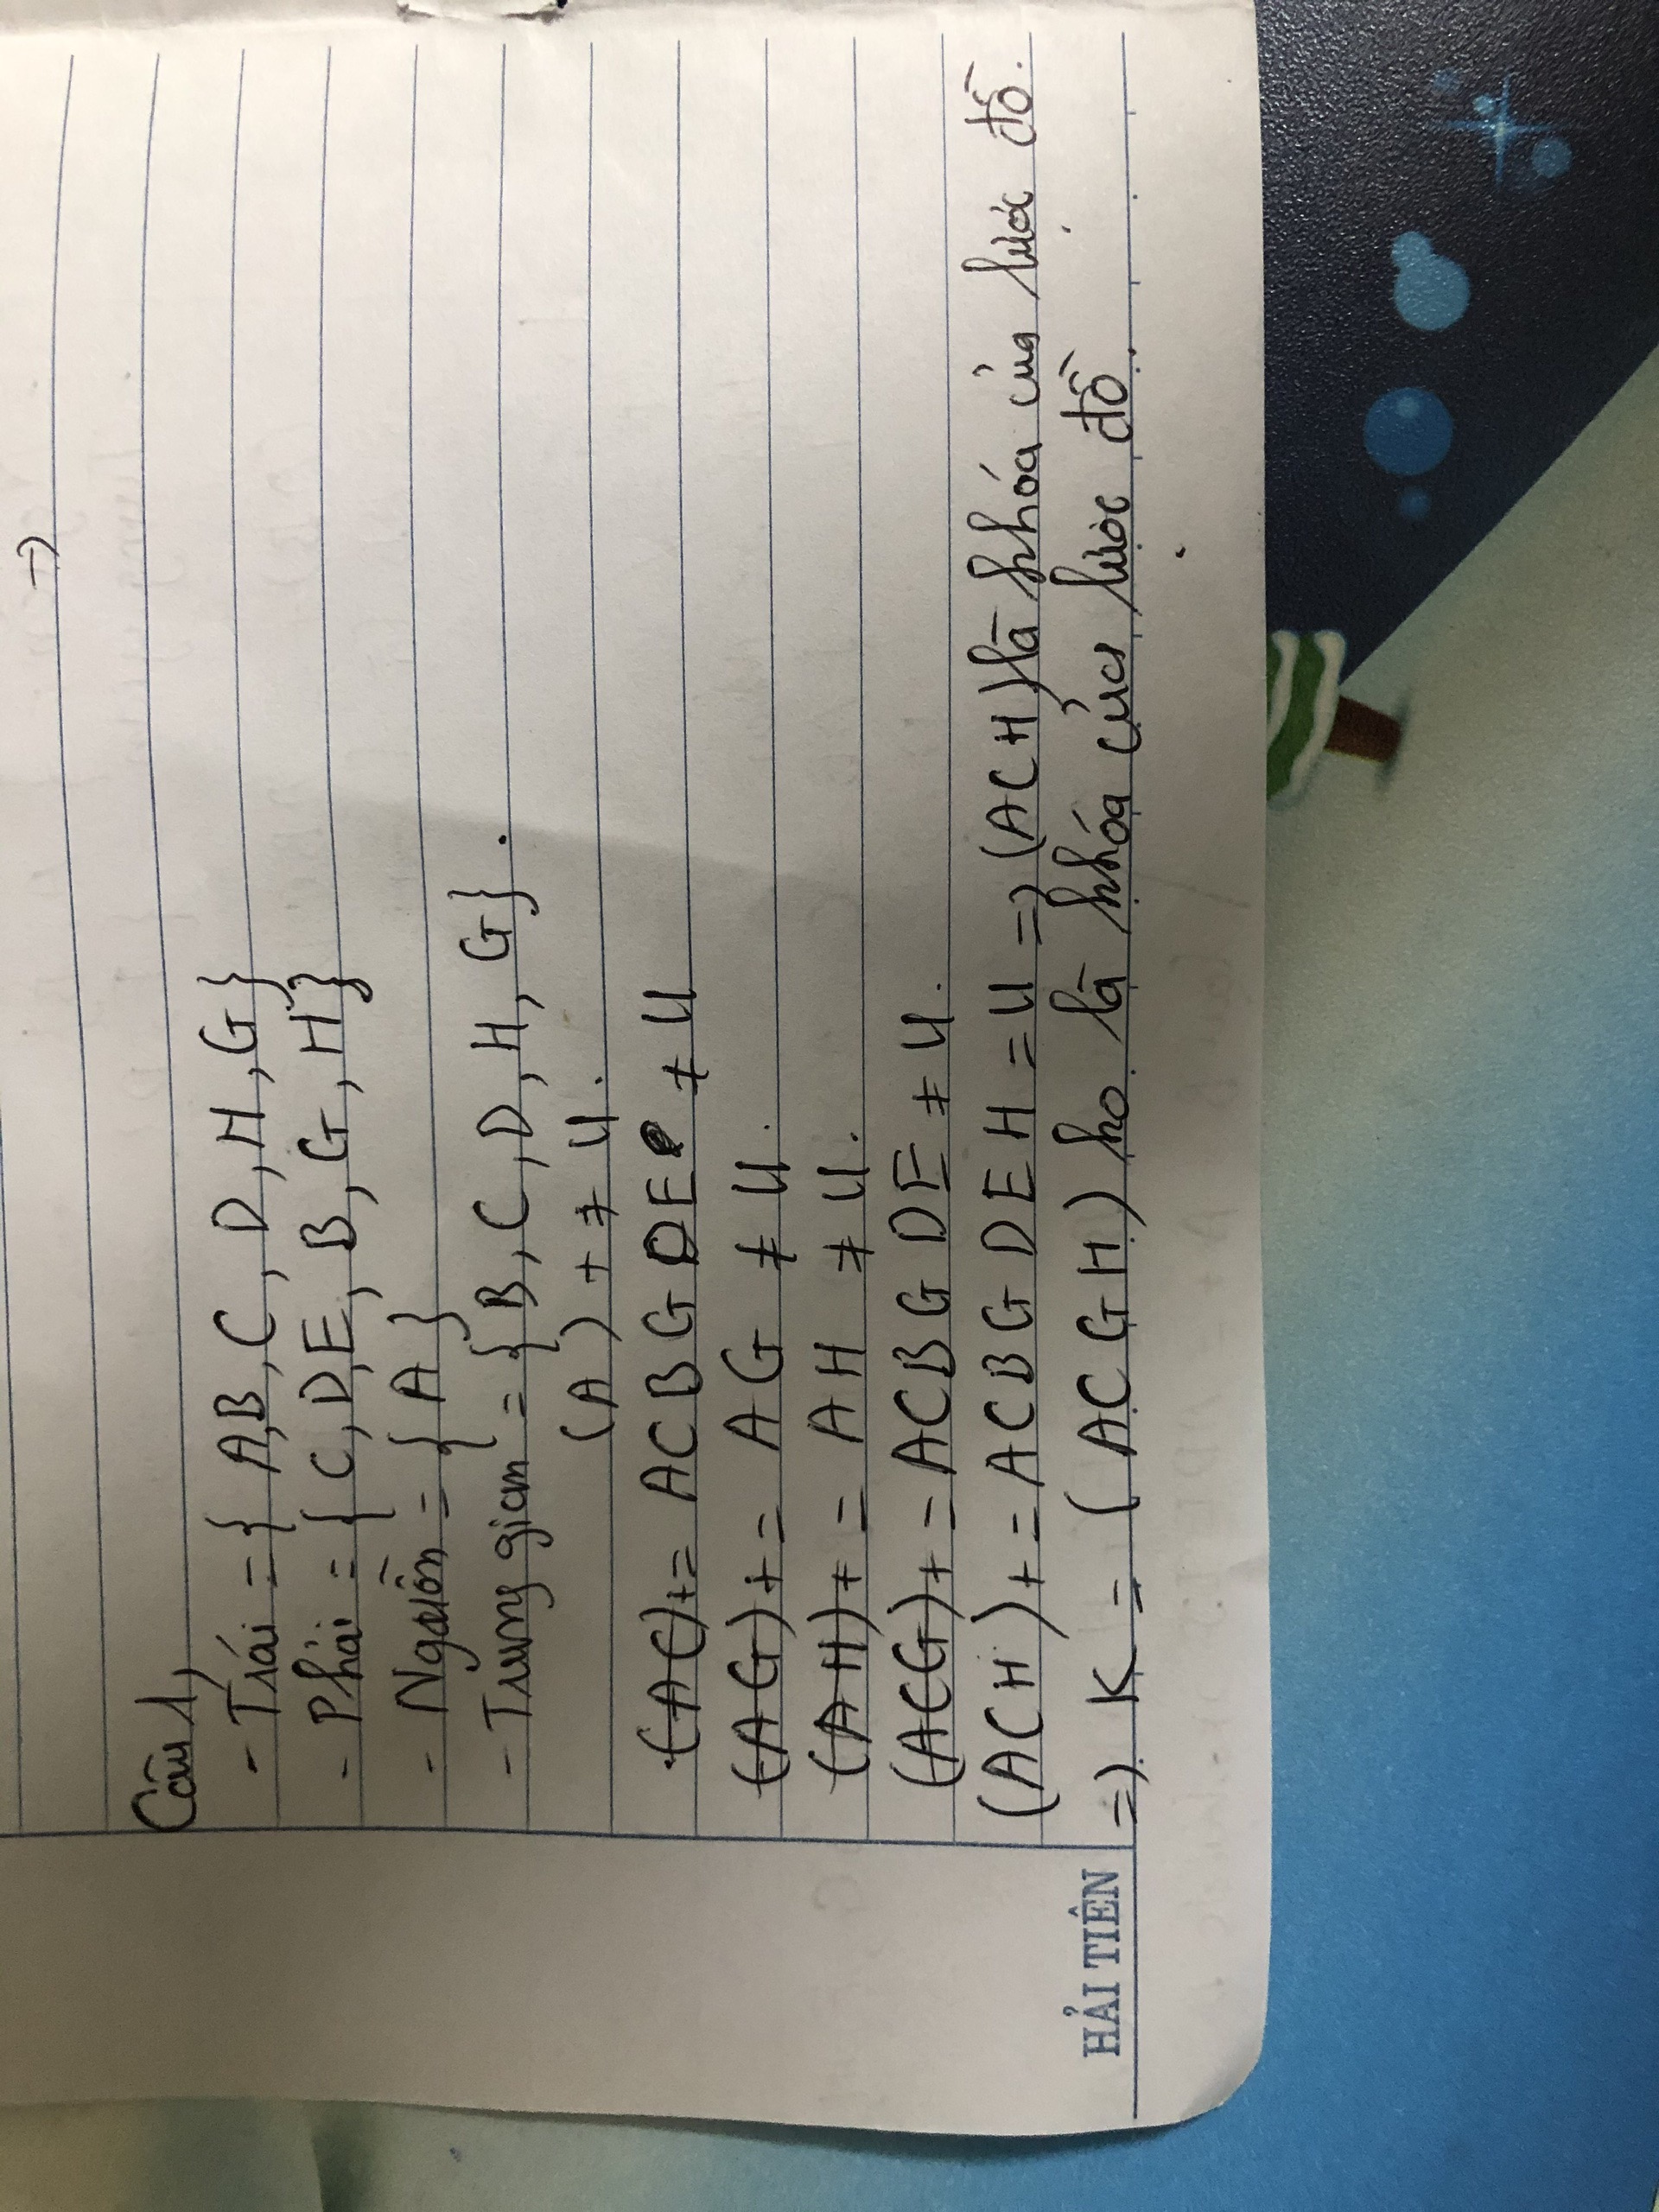 =)
Câu 1,
- Trái = { A,B, C, D, H, G}
- Phải = { C, D, E, B, G, H}
- Nguồn = { A }
- Trung gian = { B, C, D, H, G} .
(A) + ≠ U.
(AC)+ = ACBGDE ≠ U
(AG)+ = AG ≠ U.
(AH)+ = AH ≠ U.
(ACG)+ = ACBGDE ≠ U.
(ACH)+ = ACBGDEH = U => (ACH) là khóa của lược đồ.
=) K = (ACGH) ko là khóa của lược đồ.
HẢI TIÊN